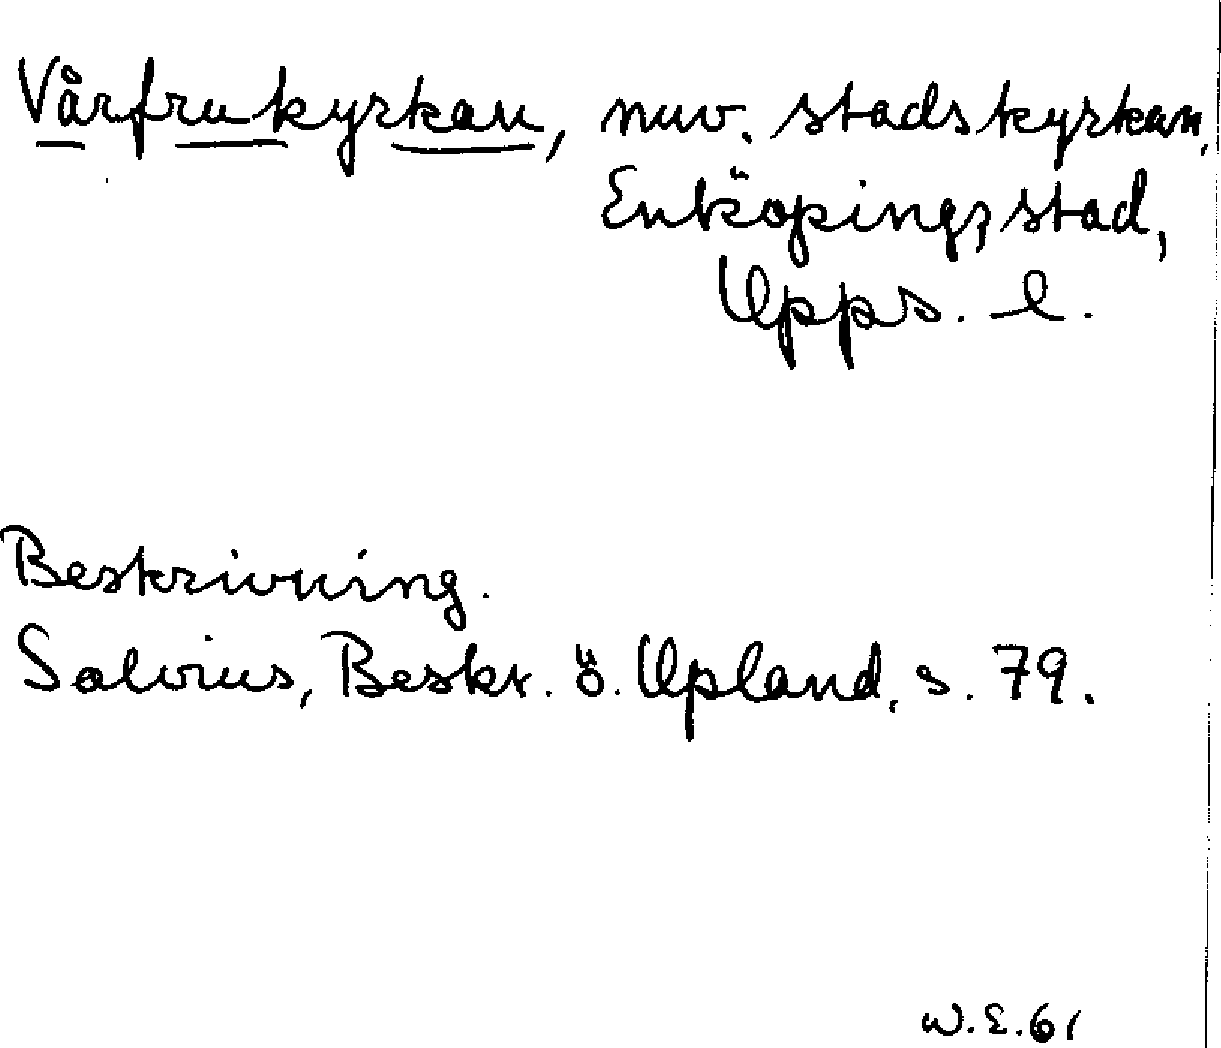 Vårfrukyrkan, nuv. stadskyrkan,
Enköpings stad,
Upps. l.
Beskrivning.
Salvius, Beskr. ö. Upland, s. 79.
W.E.61